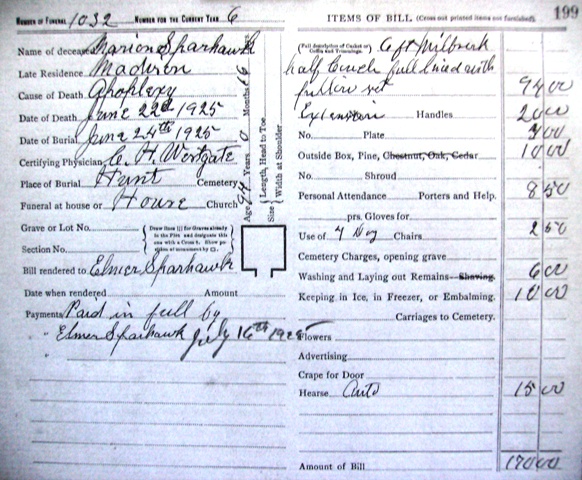 NUMBER OF FUNERAL 1032 NUMBER FOR THE CURRENT YEAR 6
ITEMS OF BILL (Cross out printed items not furnished). 199
Name of deceased Marion Sparhawk
Late Residence Madison
Cause of Death Apoplexy
Date of Death June 22d 1925
Date of Burial June 24th 1925
Certifying Physician C. H. Westgate
Place of Burial Hunt Cemetery
Funeral at house or House Church
Age 74 Years 0 Months 6
Size Length, Head to Toe
Width at Shoulder
Grave or Lot No.
Section No.
Draw lines for Graves already in the Plot and designate this one with a Cross
Bill rendered to Elmer Sparhawk
Date when rendered Amount
Payments Paid in full by
" Elmer Sparhawk July 16th 1925
"
(Full description of Casket or Coffin and Trimmings.) 6 ft
half Couch full lined with
94 00
Extension Handles 20 00
No. Plate 4 00
Outside Box, Pine, Chestnut, Oak, Cedar 10 00
No. Shroud
Personal Attendance Porters and Help. 8 50
prs. Gloves for
Use of 4 Doz Chairs 2 50
Cemetery Charges, opening grave
Washing and Laying out Remains Shaving. 6 00
Keeping in Ice, in Freezer, or Embalming. 10 00
Carriages to Cemetery.
Flowers
Advertising
Crape for Door
Hearse Auto 15 00
Amount of Bill 170 00